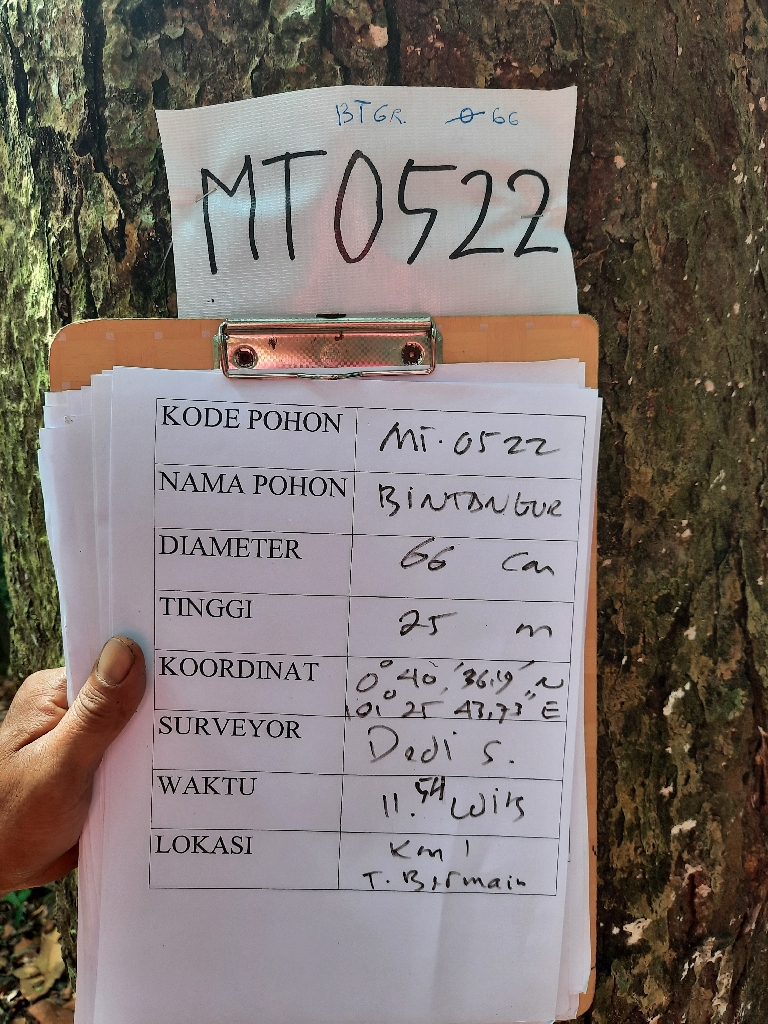 BTGR. ø 66
MT0522
KODE POHON MT.0522
NAMA POHON BINTANGUR
DIAMETER 66 cm
TINGGI 25 m
KOORDINAT 0° 40' 36,19" N
101° 25' 43,73" E
SURVEYOR Dedi S.
WAKTU 11.54 WIB
LOKASI Km 1
T. Bermain